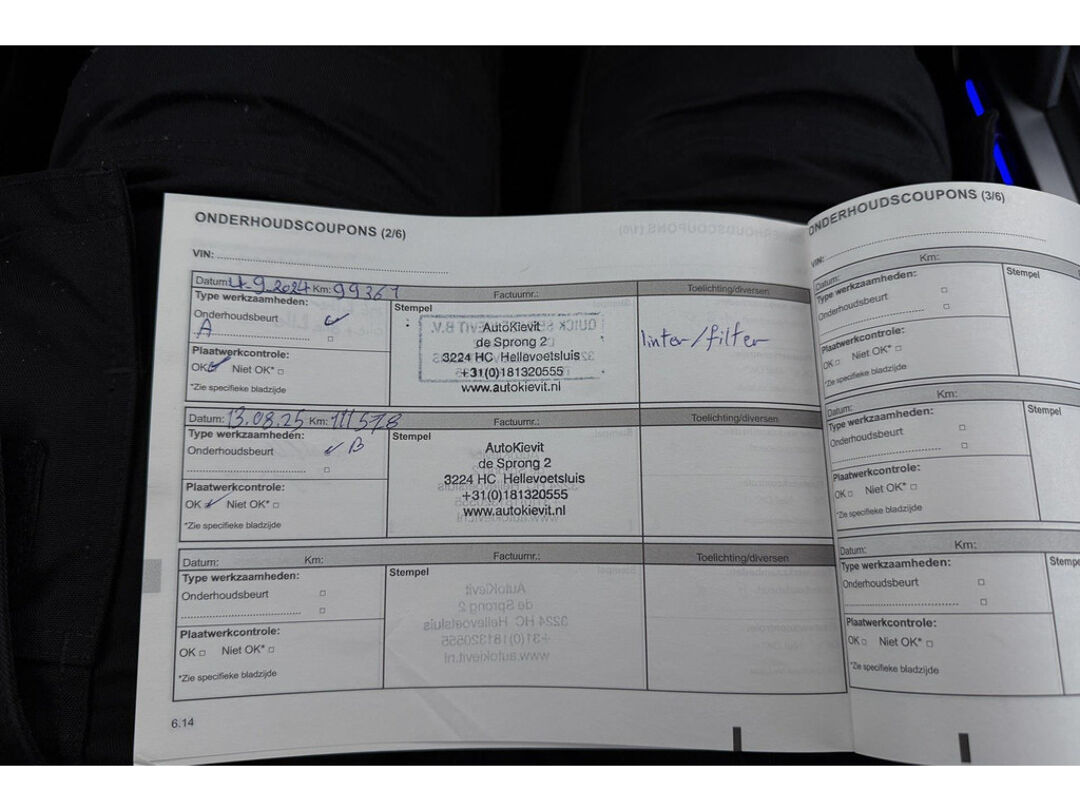 ONDERHOUDSCOUPONS (2/6)
VIN:
Datum: 4.9.2024 Km: 99367 Factuurnr.: Toelichting/diversen
Type werkzaamheden: Stempel
Onderhoudsbeurt
A
Plaatwerkcontrole:
OK Niet OK*
*Zie specifieke bladzijde
AutoKievit
de Sprong 2
3224 HC Hellevoetsluis
+31(0)181320555
www.autokievit.nl
/filter
Datum: 13.08.25 Km: 111578 Factuurnr.: Toelichting/diversen
Type werkzaamheden: Stempel
Onderhoudsbeurt B
Plaatwerkcontrole:
OK Niet OK*
*Zie specifieke bladzijde
AutoKievit
de Sprong 2
3224 HC Hellevoetsluis
+31(0)181320555
www.autokievit.nl
Datum: Km: Factuurnr.: Toelichting/diversen
Type werkzaamheden: Stempel
Onderhoudsbeurt
Plaatwerkcontrole:
OK Niet OK*
*Zie specifieke bladzijde
6.14
ONDERHOUDSCOUPONS (3/6)
VIN:
Datum: Km:
Type werkzaamheden: Stempel
Onderhoudsbeurt
Plaatwerkcontrole:
OK Niet OK*
*Zie specifieke bladzijde
Datum: Km:
Type werkzaamheden: Stempel
Onderhoudsbeurt
Plaatwerkcontrole:
OK Niet OK*
*Zie specifieke bladzijde
Datum: Km:
Type werkzaamheden: Stempe
Onderhoudsbeurt
Plaatwerkcontrole:
OK Niet OK*
*Zie specifieke bladzijde